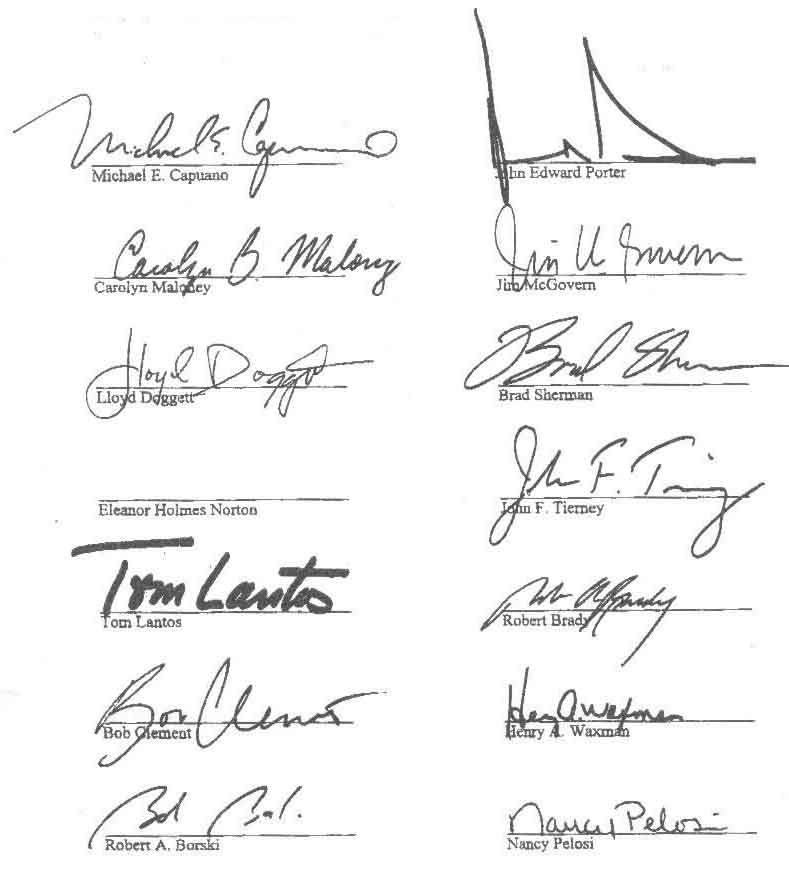 Michael E. Capuano
Michael E. Capuano
John Edward Porter
Carolyn B. Maloney
Carolyn Maloney
Jim McGovern
Jim McGovern
Lloyd Doggett
Lloyd Doggett
Brad Sherman
Brad Sherman
Eleanor Holmes Norton
John F. Tierney
John F. Tierney
Tom Lantos
Tom Lantos
Rob A Brady
Robert Brady
Bob Clement
Bob Clement
Henry A. Waxman
Henry A. Waxman
Bob
Robert A. Borski
Nancy Pelosi
Nancy Pelosi